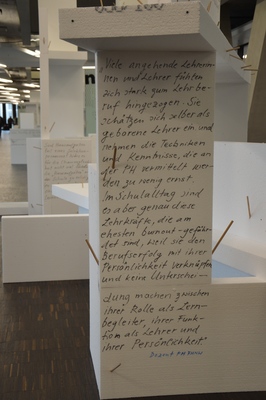 Viele angehende Lehrerin-
nen und Lehrer fühlen
sich stark zum Lehrbe-
ruf hingezogen. Sie
schätzen sich selber als
geborene Lehrer ein und
nehmen die Techniken
und Kenntnisse, die an
der PH vermittelt wer-
den zu wenig ernst.
Im Schulalltag sind
es aber genau diese
Lehrkräfte, die am
ehesten burnout-gefähr-
det sind, weil sie den
Berufserfolg mit ihrer
Persönlichkeit verknüpfen
und keine Unterschei-
dung machen zwischen
ihrer Rolle als Lern-
begleiter, ihrer Funk-
tion als Lehrer und
ihrer Persönlichkeit"